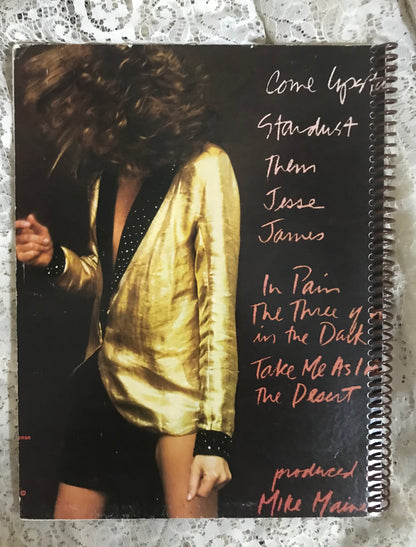 Come Upsta
Stardust
Them
Jesse
James
In Pain
The Three of
in the Dark
Take Me As I
the Desert
produced
Mike Maine